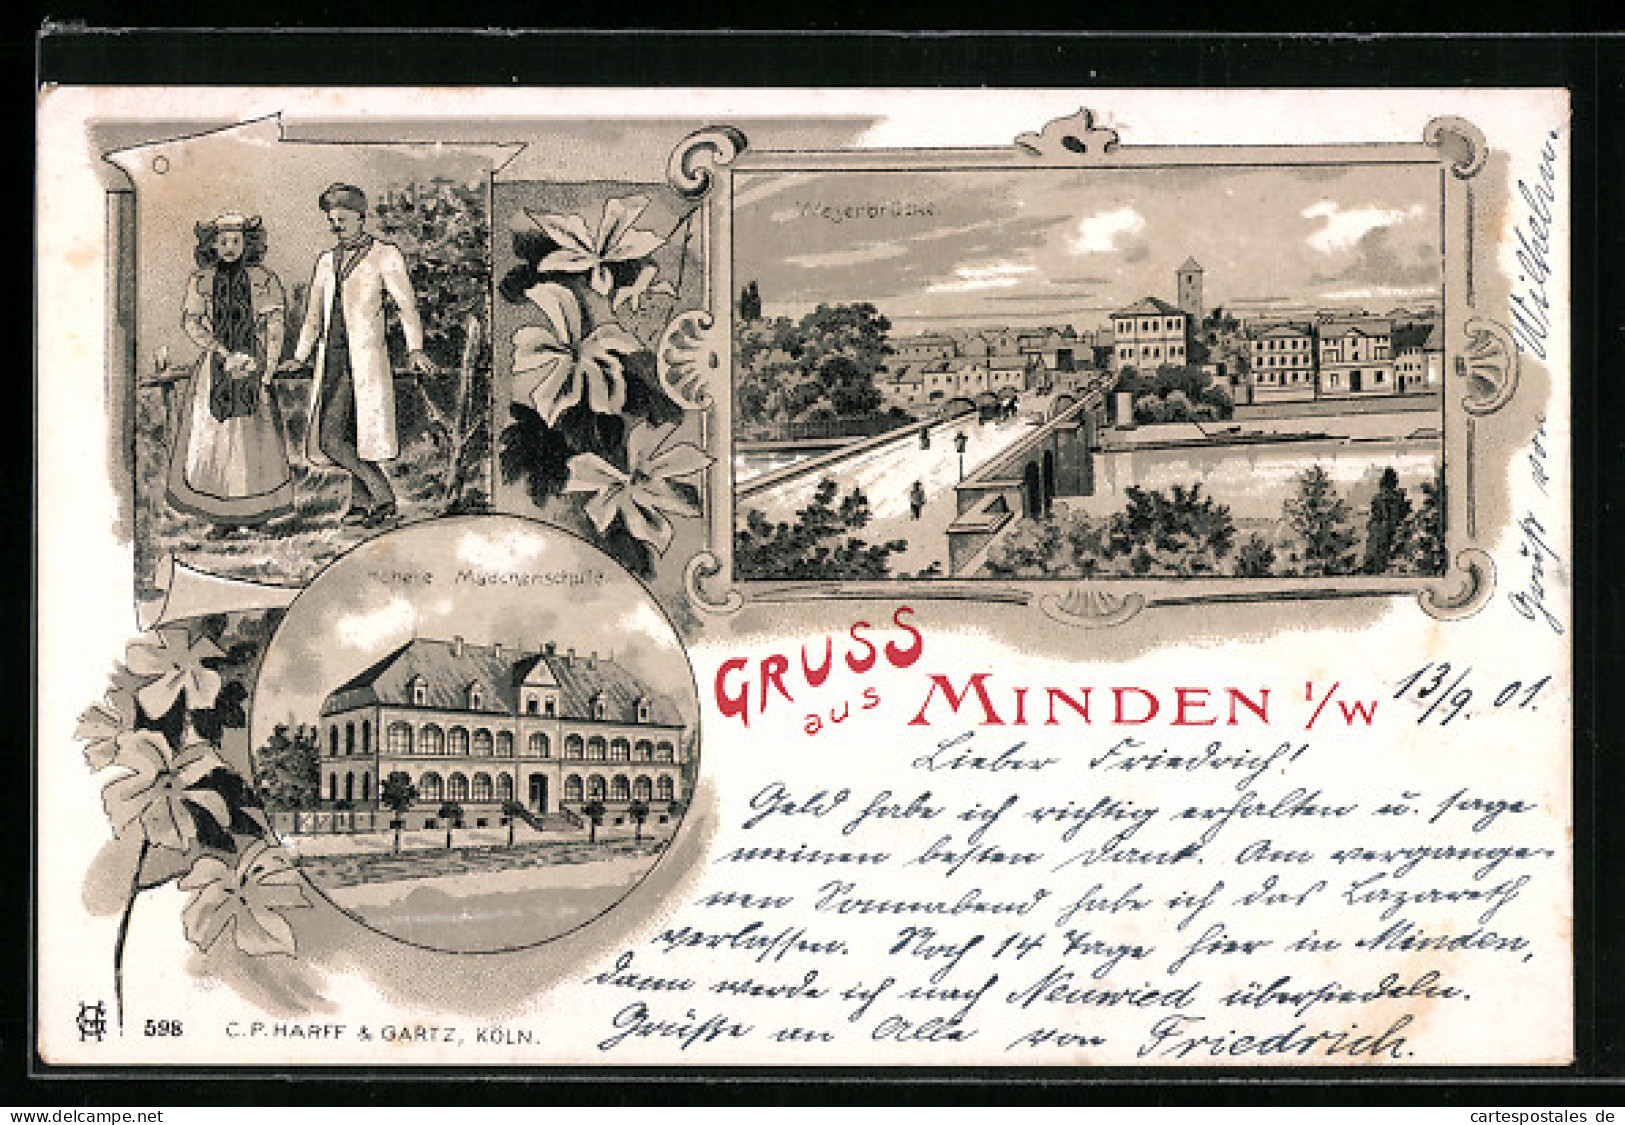 Weserbrücke.
Höhere Mädchenschule.
GRUSS
aus MINDEN I/W
13/9. 01.
Lieber Friedrich!
Geld habe ich richtig erhalten u. sage
meinen besten Dank. Am vergange-
nen Sonnabend habe ich das Lazareth
verlassen. Noch 14 Tage hier in Minden,
dann werde ich nach Neuwied übersiedeln.
Grüße an Alle von Friedrich.
Gruß von Wilhelm.
598 C.P. HARFF & GARTZ, KÖLN.
cartespostales de